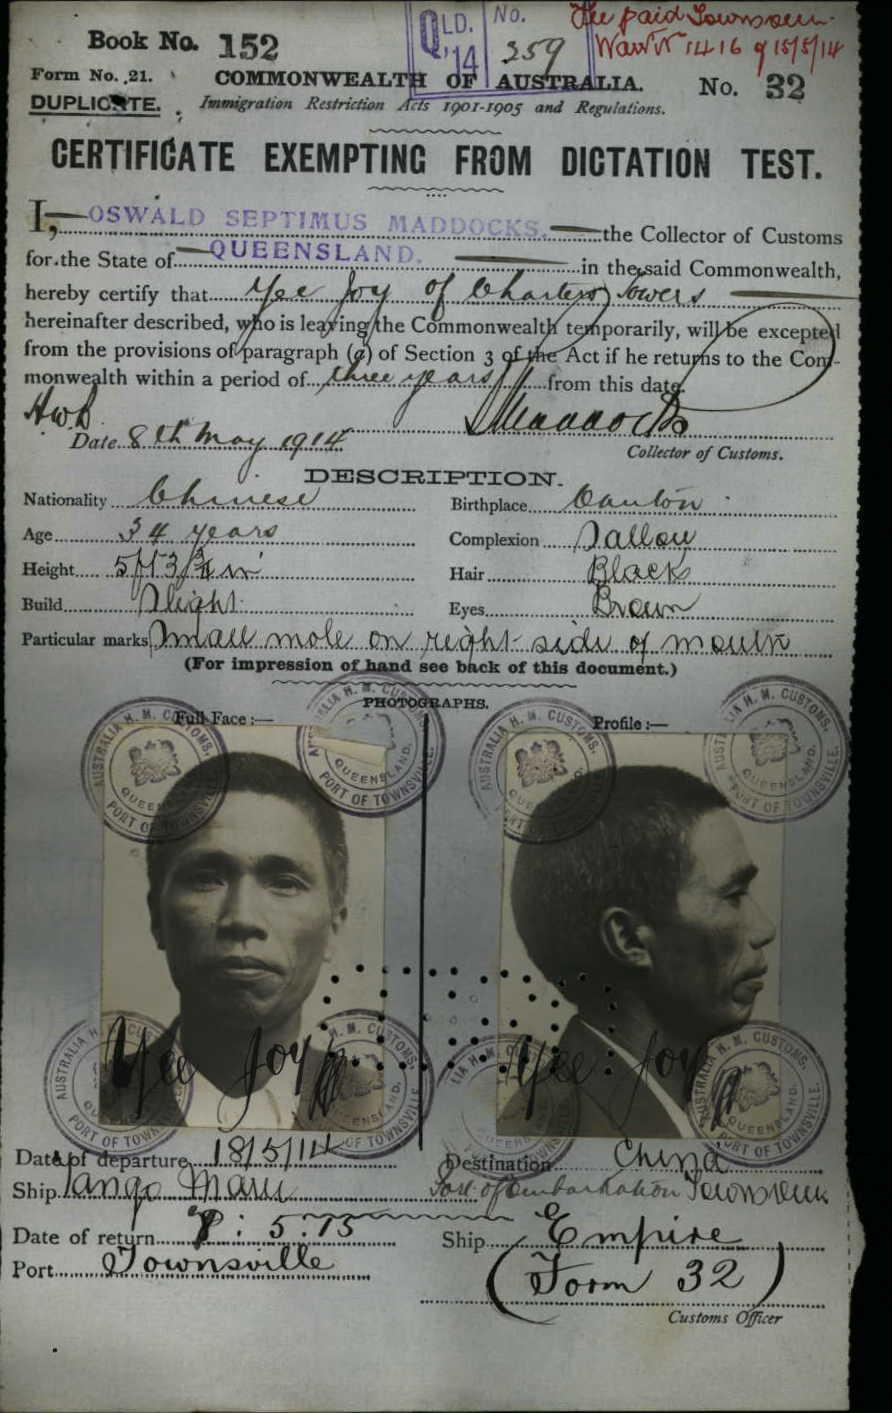 QLD. '14 No. 359
Fee paid Townsville
14 16 of 15/5/14
Book No. 152
Form No. 21.
COMMONWEALTH OF AUSTRALIA.
No. 32
DUPLICATE.
Immigration Restriction Acts 1901-1905 and Regulations.
CERTIFICATE EXEMPTING FROM DICTATION TEST.
I, OSWALD SEPTIMUS MADDOCKS. the Collector of Customs
for the State of QUEENSLAND. in the said Commonwealth,
hereby certify that Yee Joy of Charters Towers
hereinafter described, who is leaving the Commonwealth temporarily, will be excepted
from the provisions of paragraph (a) of Section 3 of the Act if he returns to the Com-
monwealth within a period of three years from this date.
Date 8th May 1914 Maddocks
Collector of Customs.
DESCRIPTION.
Nationality Chinese Birthplace Canton
Age 34 years Complexion Sallow
Height 5ft 3¾ in Hair Black
Build Slight Eyes Brown
Particular marks Small mole on right side of mouth
(For impression of hand see back of this document.)
PHOTOGRAPHS.
Full Face :— Profile :—
AUSTRALIA H. M. CUSTOMS. QUEENSLAND. PORT OF TOWNSVILLE.
Yee Joy Yee Joy
Date of departure 18/5/14 Destination China
Ship Tango Maru Port of Embarkation Townsville
Date of return 8 : 5 : 15 Ship Empire
Port Townsville (Form 32)
Customs Officer